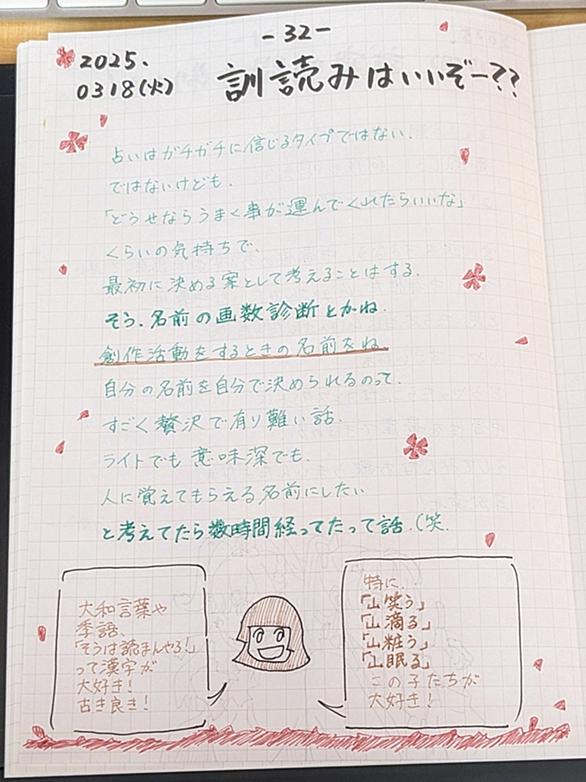 -32-
2025.
0318(火)
訓読みはいいぞー??
占いはガチガチに信じるタイプではない.
ではないけども.
「どうせならうまく事が運んでくれたらいいな」
くらいの気持ちで、
最初に決める案として考えることはする.
そう、名前の画数診断とかね.
創作活動をするときの名前をね.
自分の名前を自分で決められるのって.
すごく贅沢で有り難い話.
ライトでも意味深でも.
人に覚えてもらえる名前にしたい
と考えてたら数時間経ってたって話.(笑.
大和言葉や
季語、
「そうは読まんやろ!」
って漢字が
大好き!
古き良き!
特に…
「山笑う」
「山滴る」
「山粧う」
「山眠る」
この子たちが
大好き!